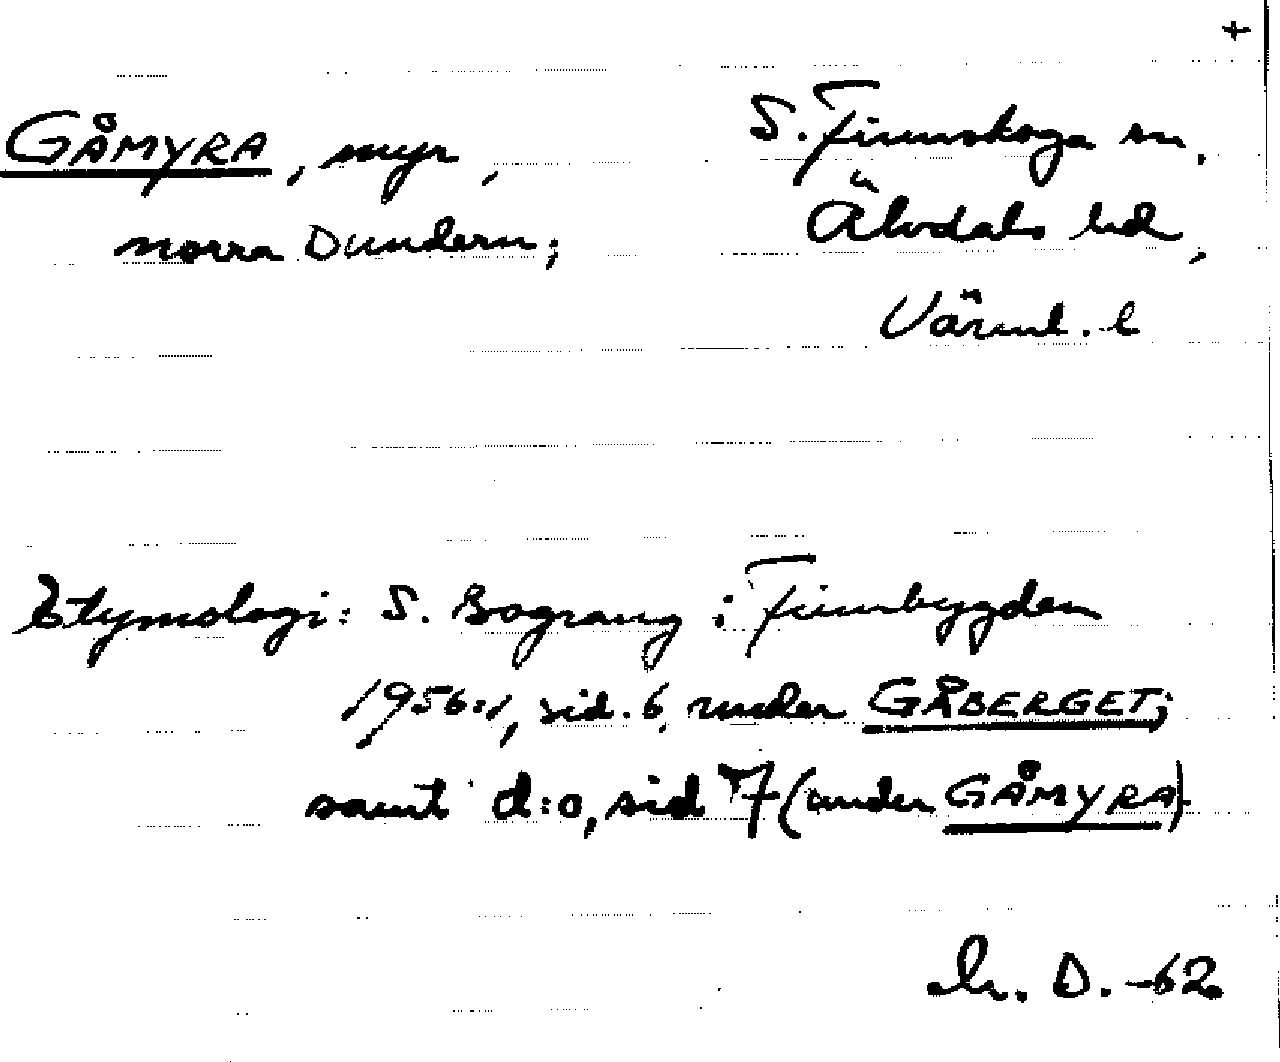 +
GÅMYRA, myr,
norra Dundern;
S. Finnskoga sn,
Älvdals hd,
Värml. l
Etymologi: S. Bograng i Finnbygden
1956:1, sid. 6, under GÅBERGET;
samt d:o, sid 7 (under GÅMYRA).
D. -62